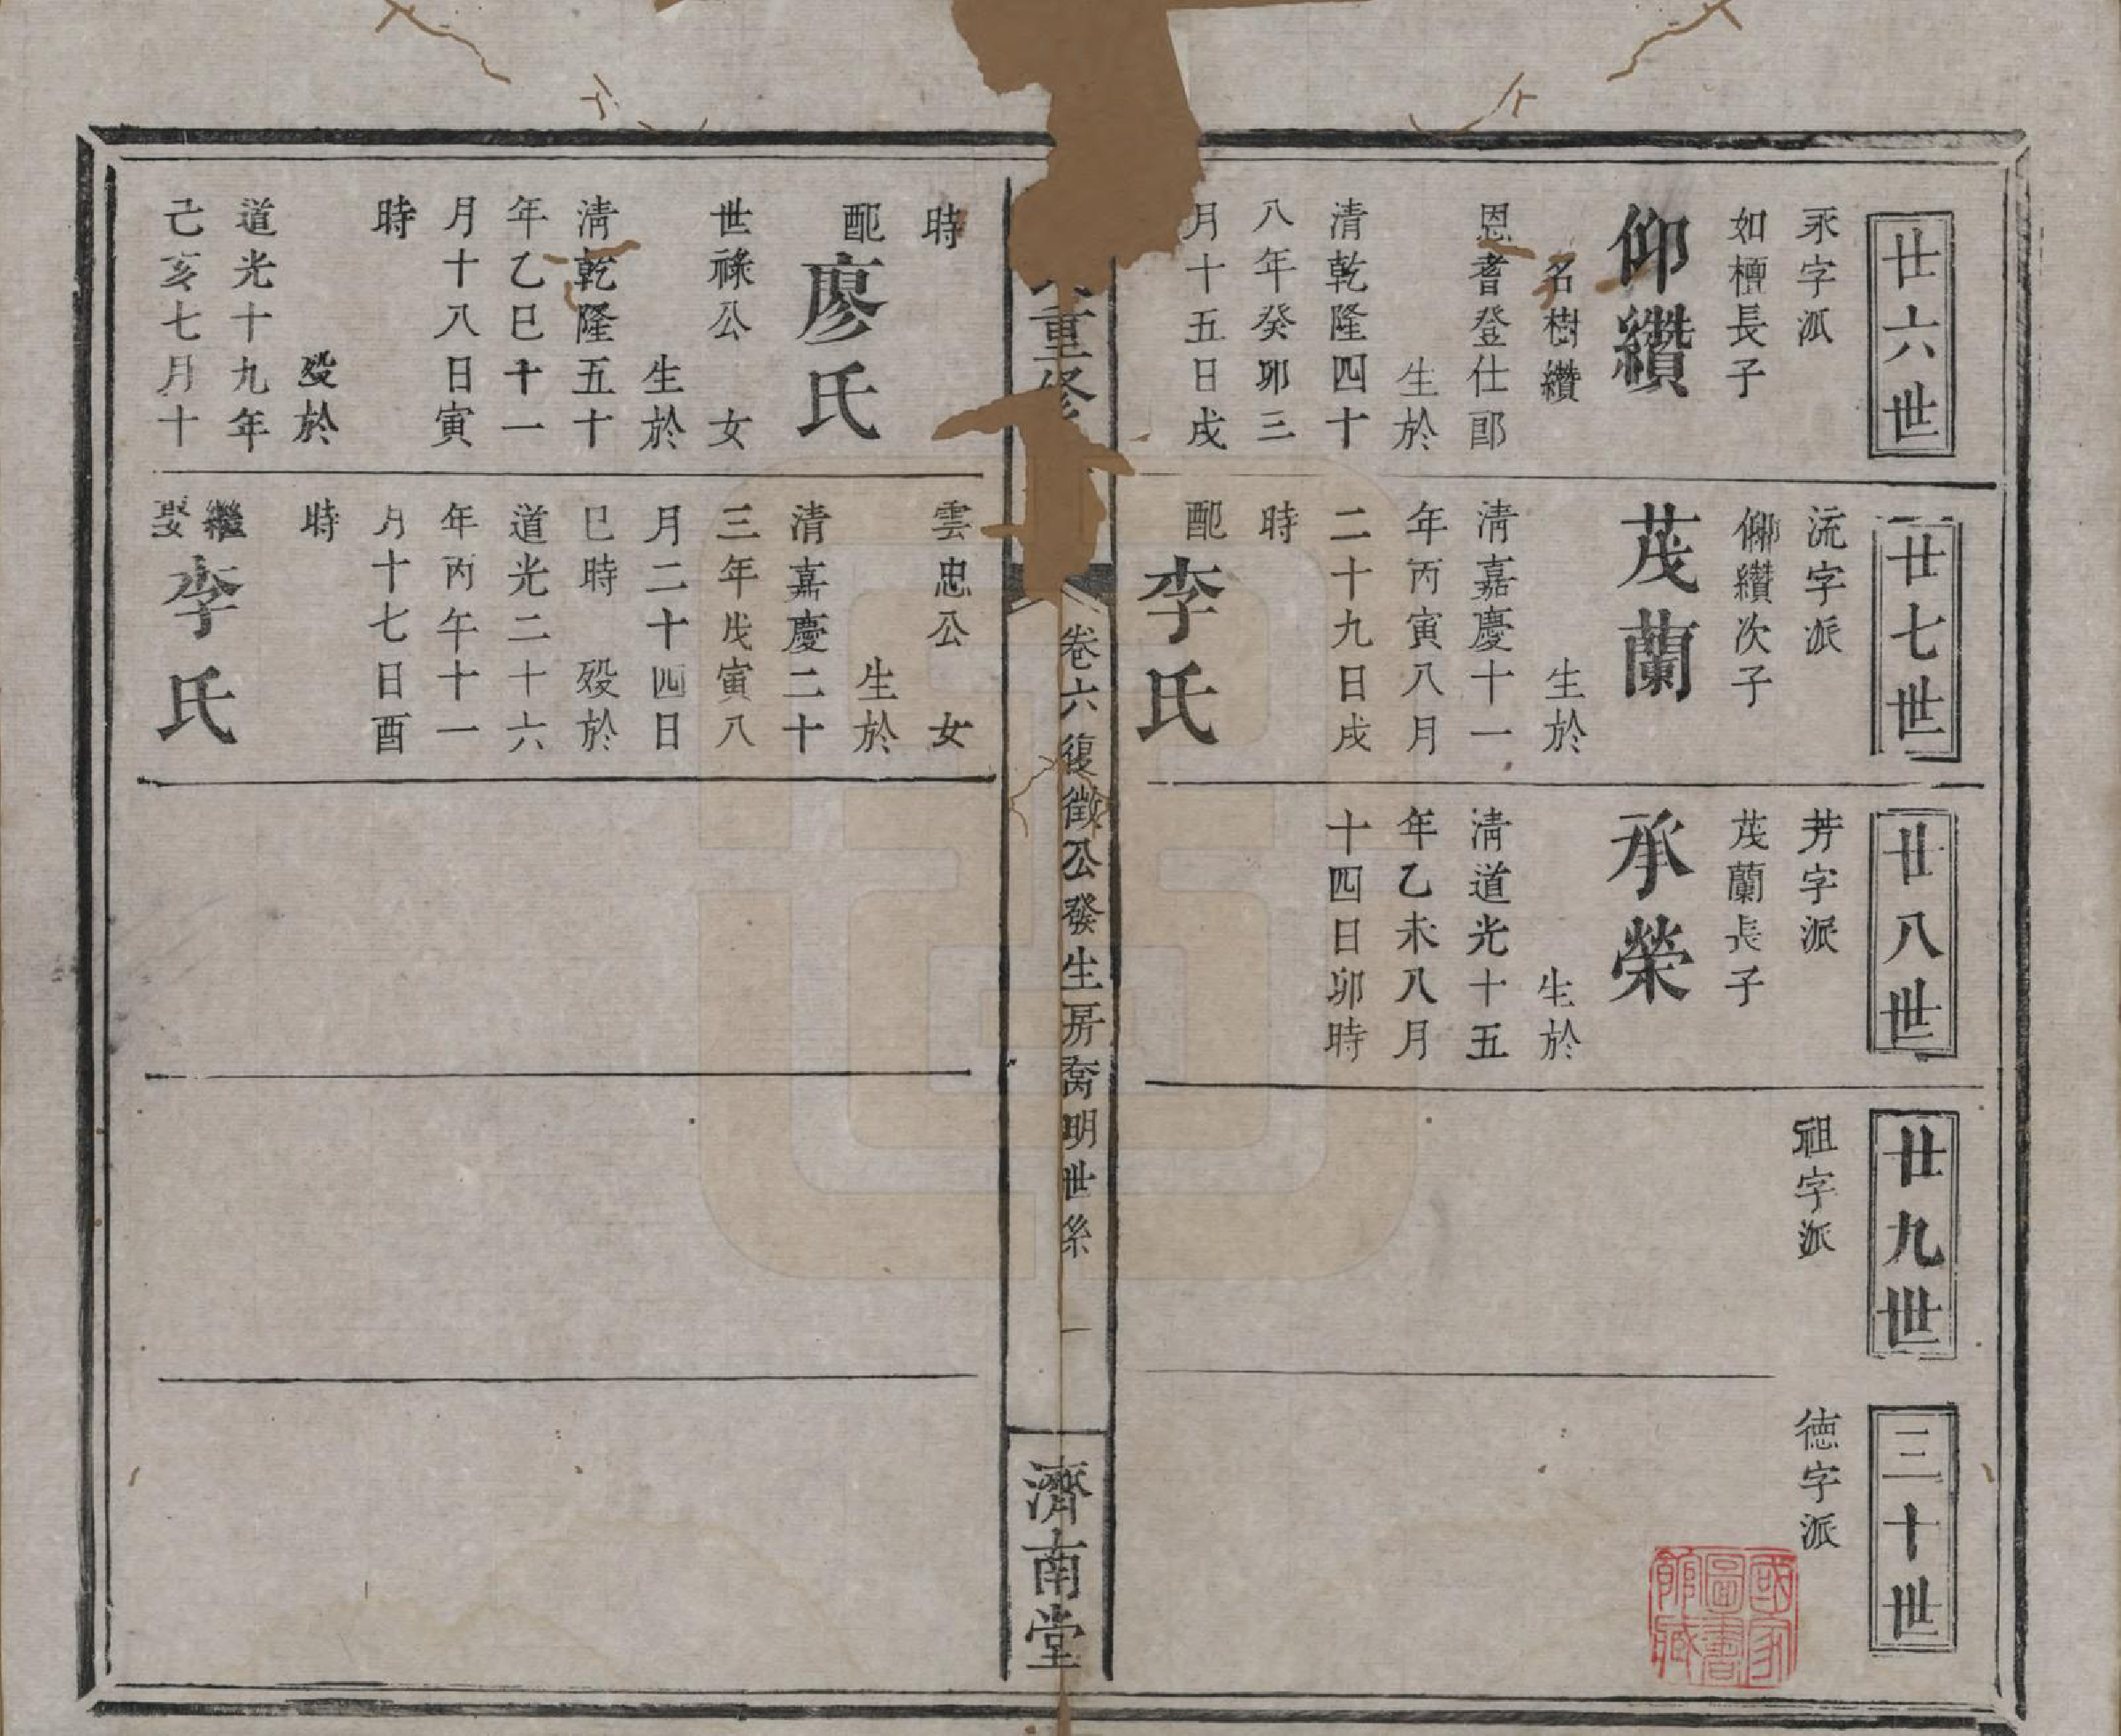 廿六世
承字派
如櫝長子
仰纘
名樹纘
恩耆登仕郎
生於
清乾隆四十
八年癸卯三
月十五日戌
時
配
廖氏
世祿公 女
生於
清乾隆五十
年乙巳十一
月十八日寅
時
殁於
道光十九年
己亥七月十
廿七世
流字派
仰纘次子
茂蘭
生於
清嘉慶十一
年丙寅八月
二十九日戌
時
配李氏
雲忠公 女
生於
清嘉慶二十
三年戊寅八
月二十四日
巳時 殁於
道光二十六
年丙午十一
月十七日酉
時
繼娶李氏
廿八世
芳字派
茂蘭長子
承榮
生於
清道光十五
年乙未八月
十四日卯時
廿九世
祖字派
三十世
德字派
重修
卷六 復徵公發生房喬明世系 一
濟南堂
國家圖書館藏